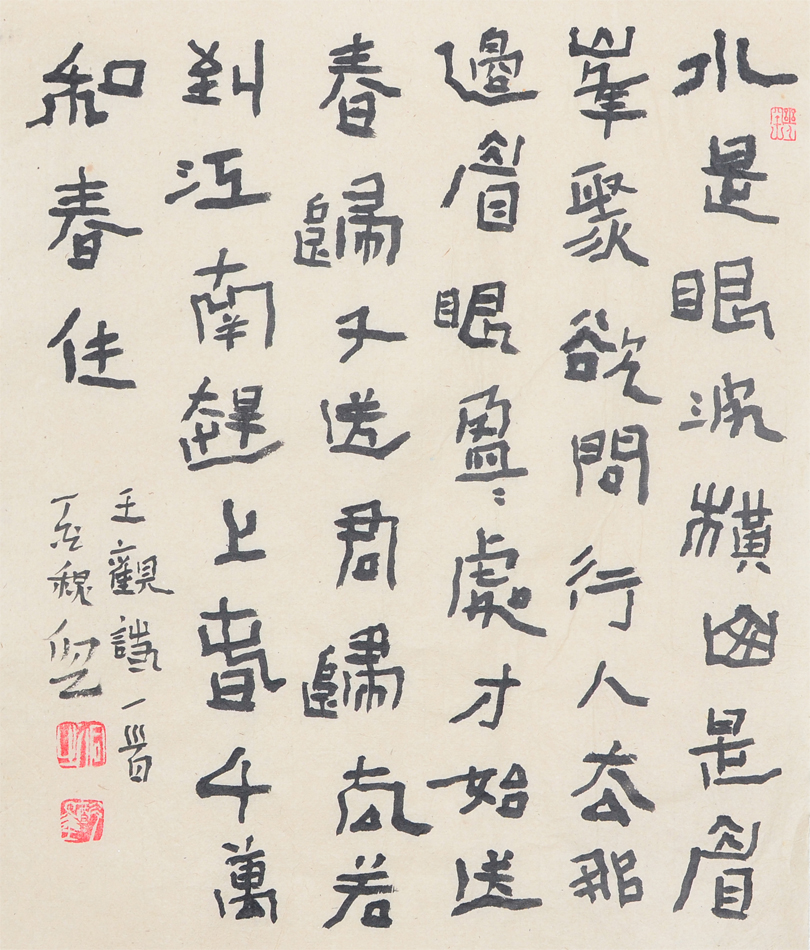 水是眼波橫山是眉
峯聚欲問行人去那
邊眉眼盈〻處才始送
春歸又送君歸去若
到江南趕上春千萬
和春住
王觀一首
丁亥魏